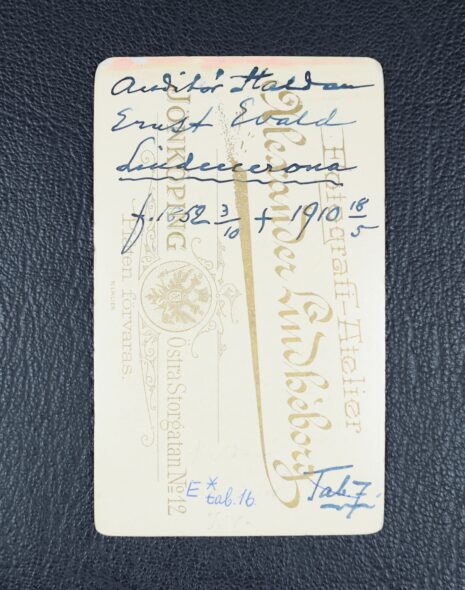 Auditör Haldan
Ernst Evald
Lindencrona
f. 1852 3/10 + 1910 18/5
Fotograff-Atelier
Alexander Lindheborg
JÖNKÖPING
Östra Storgatan No 12
Platen förvaras.
E *
tab. 16
Tab 7.